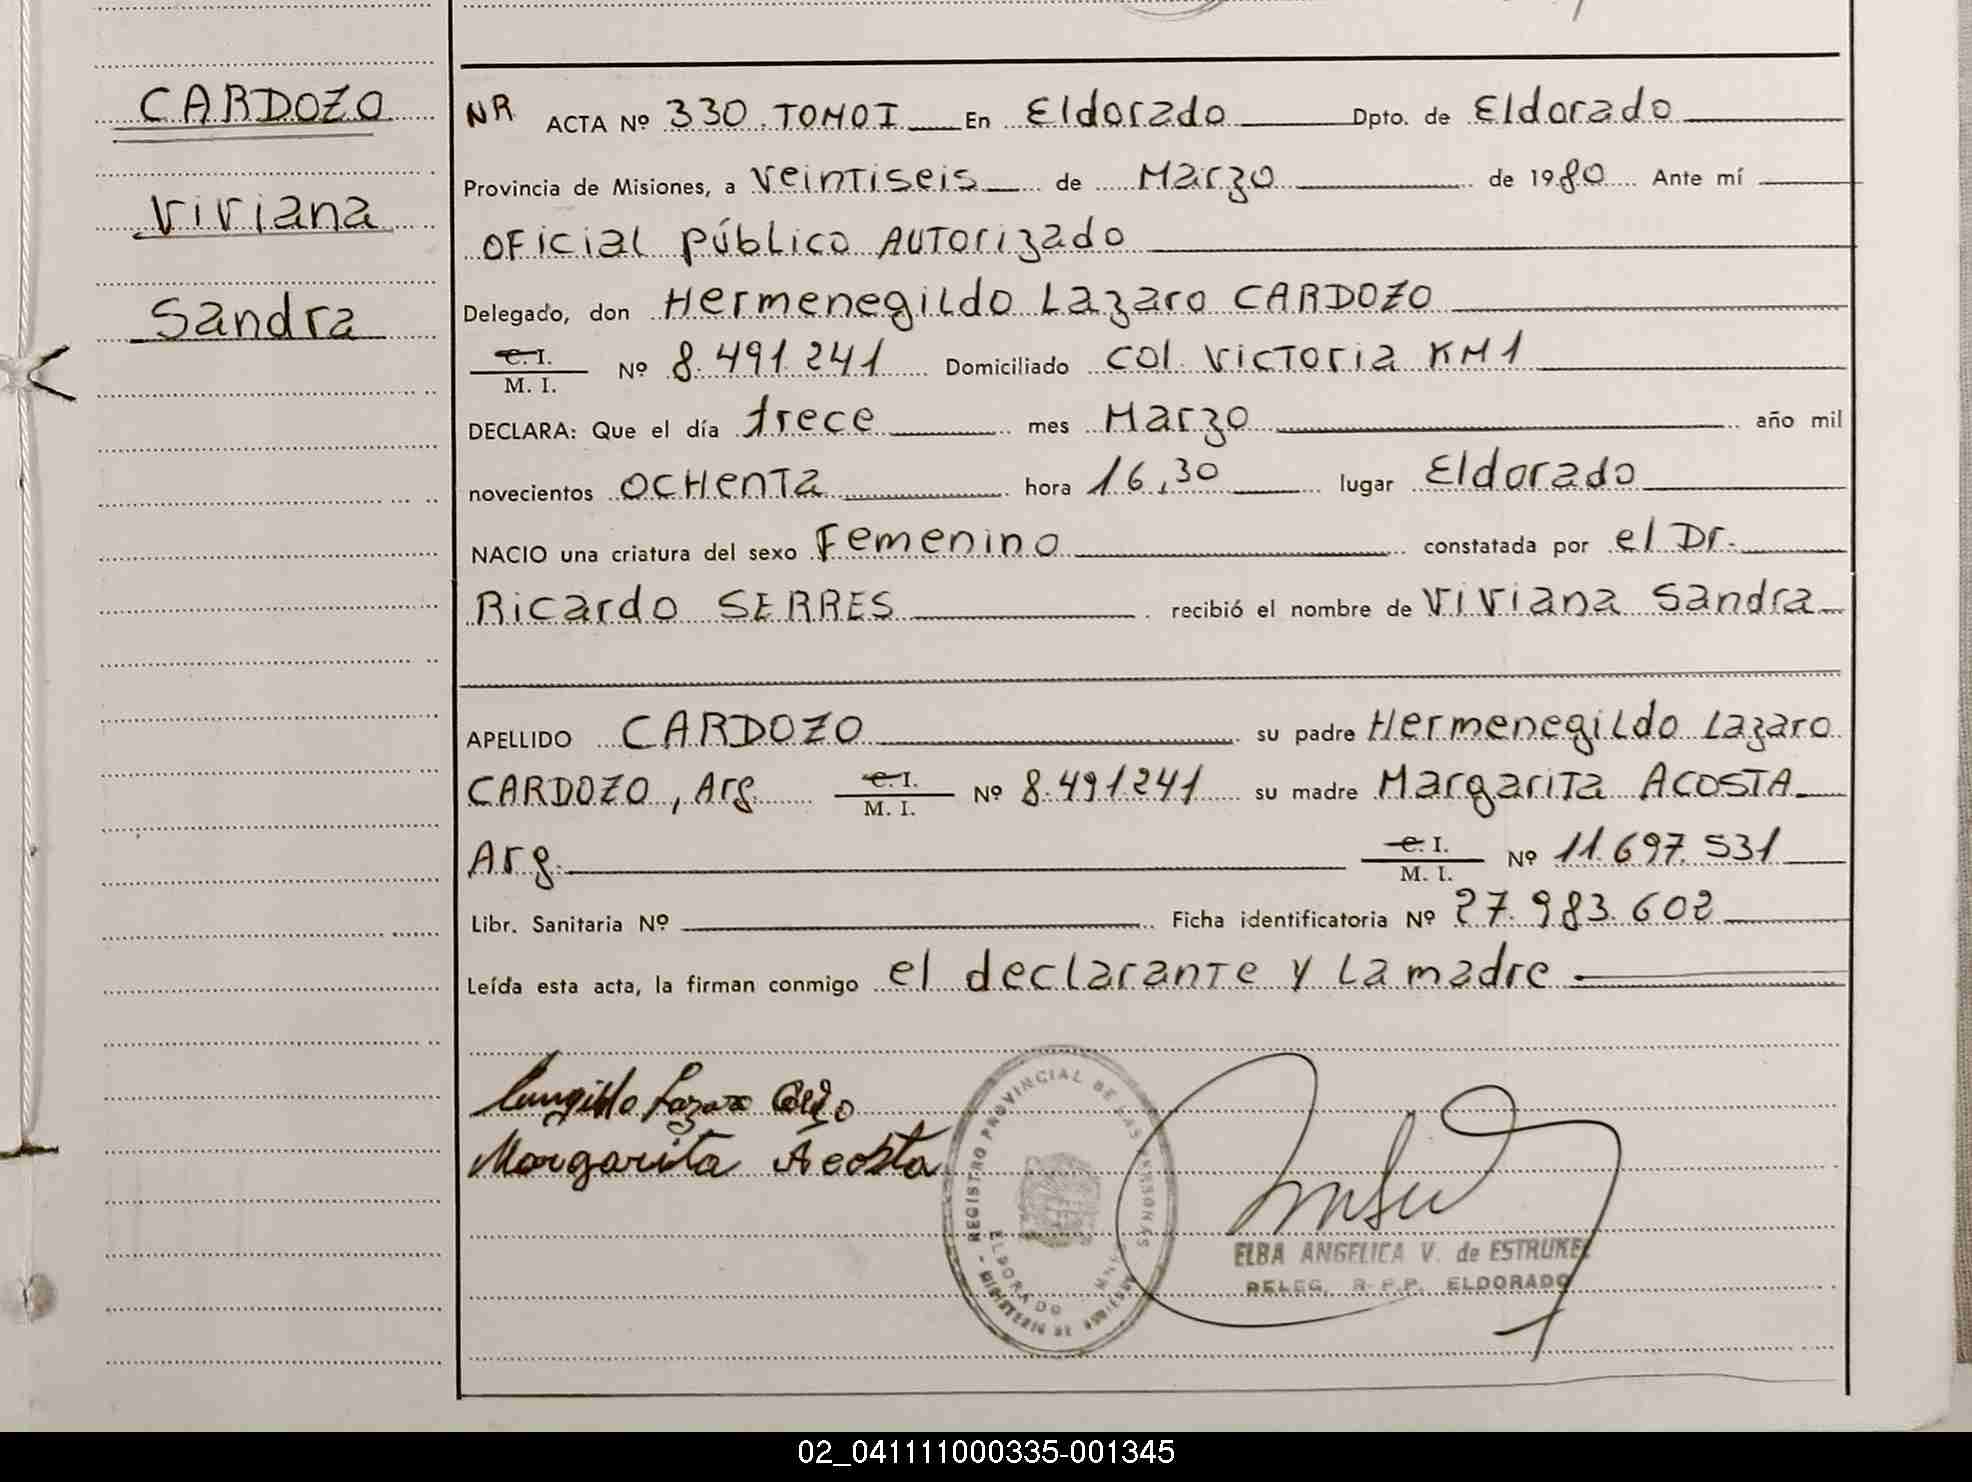 CARDOZO
Viviana
Sandra
NR ACTA Nº 330 TOMO I En Eldorado Dpto. de Eldorado
Provincia de Misiones, a veintiseis de Marzo de 1980 Ante mí
Oficial Público Autorizado
Delegado, don Hermenegildo Lazaro CARDOZO
C. I.
M. I. Nº 8.491.241 Domiciliado Col. Victoria KM 1
DECLARA: Que el día trece mes Marzo año mil
novecientos ochenta hora 16,30 lugar Eldorado
NACIO una criatura del sexo Femenino constatada por el Dr.
Ricardo SERRES recibió el nombre de Viviana Sandra
APELLIDO CARDOZO su padre Hermenegildo Lazaro
CARDOZO, Arg. C. I. M. I. Nº 8.491.241 su madre Margarita ACOSTA
Arg. C. I. M. I. Nº 11.697.531
Libr. Sanitaria Nº Ficha identificatoria Nº 27.983.602
Leída esta acta, la firman conmigo el declarante y la madre
Lazaro
Margarita Acosta
REGISTRO PROVINCIAL DE LAS PERSONAS
ELDORADO
MINISTERIO DE GOBIERNO
ELBA ANGELICA V. de ESTRUKEL
DELEG. R. P. P. ELDORADO
02_041111000335-001345